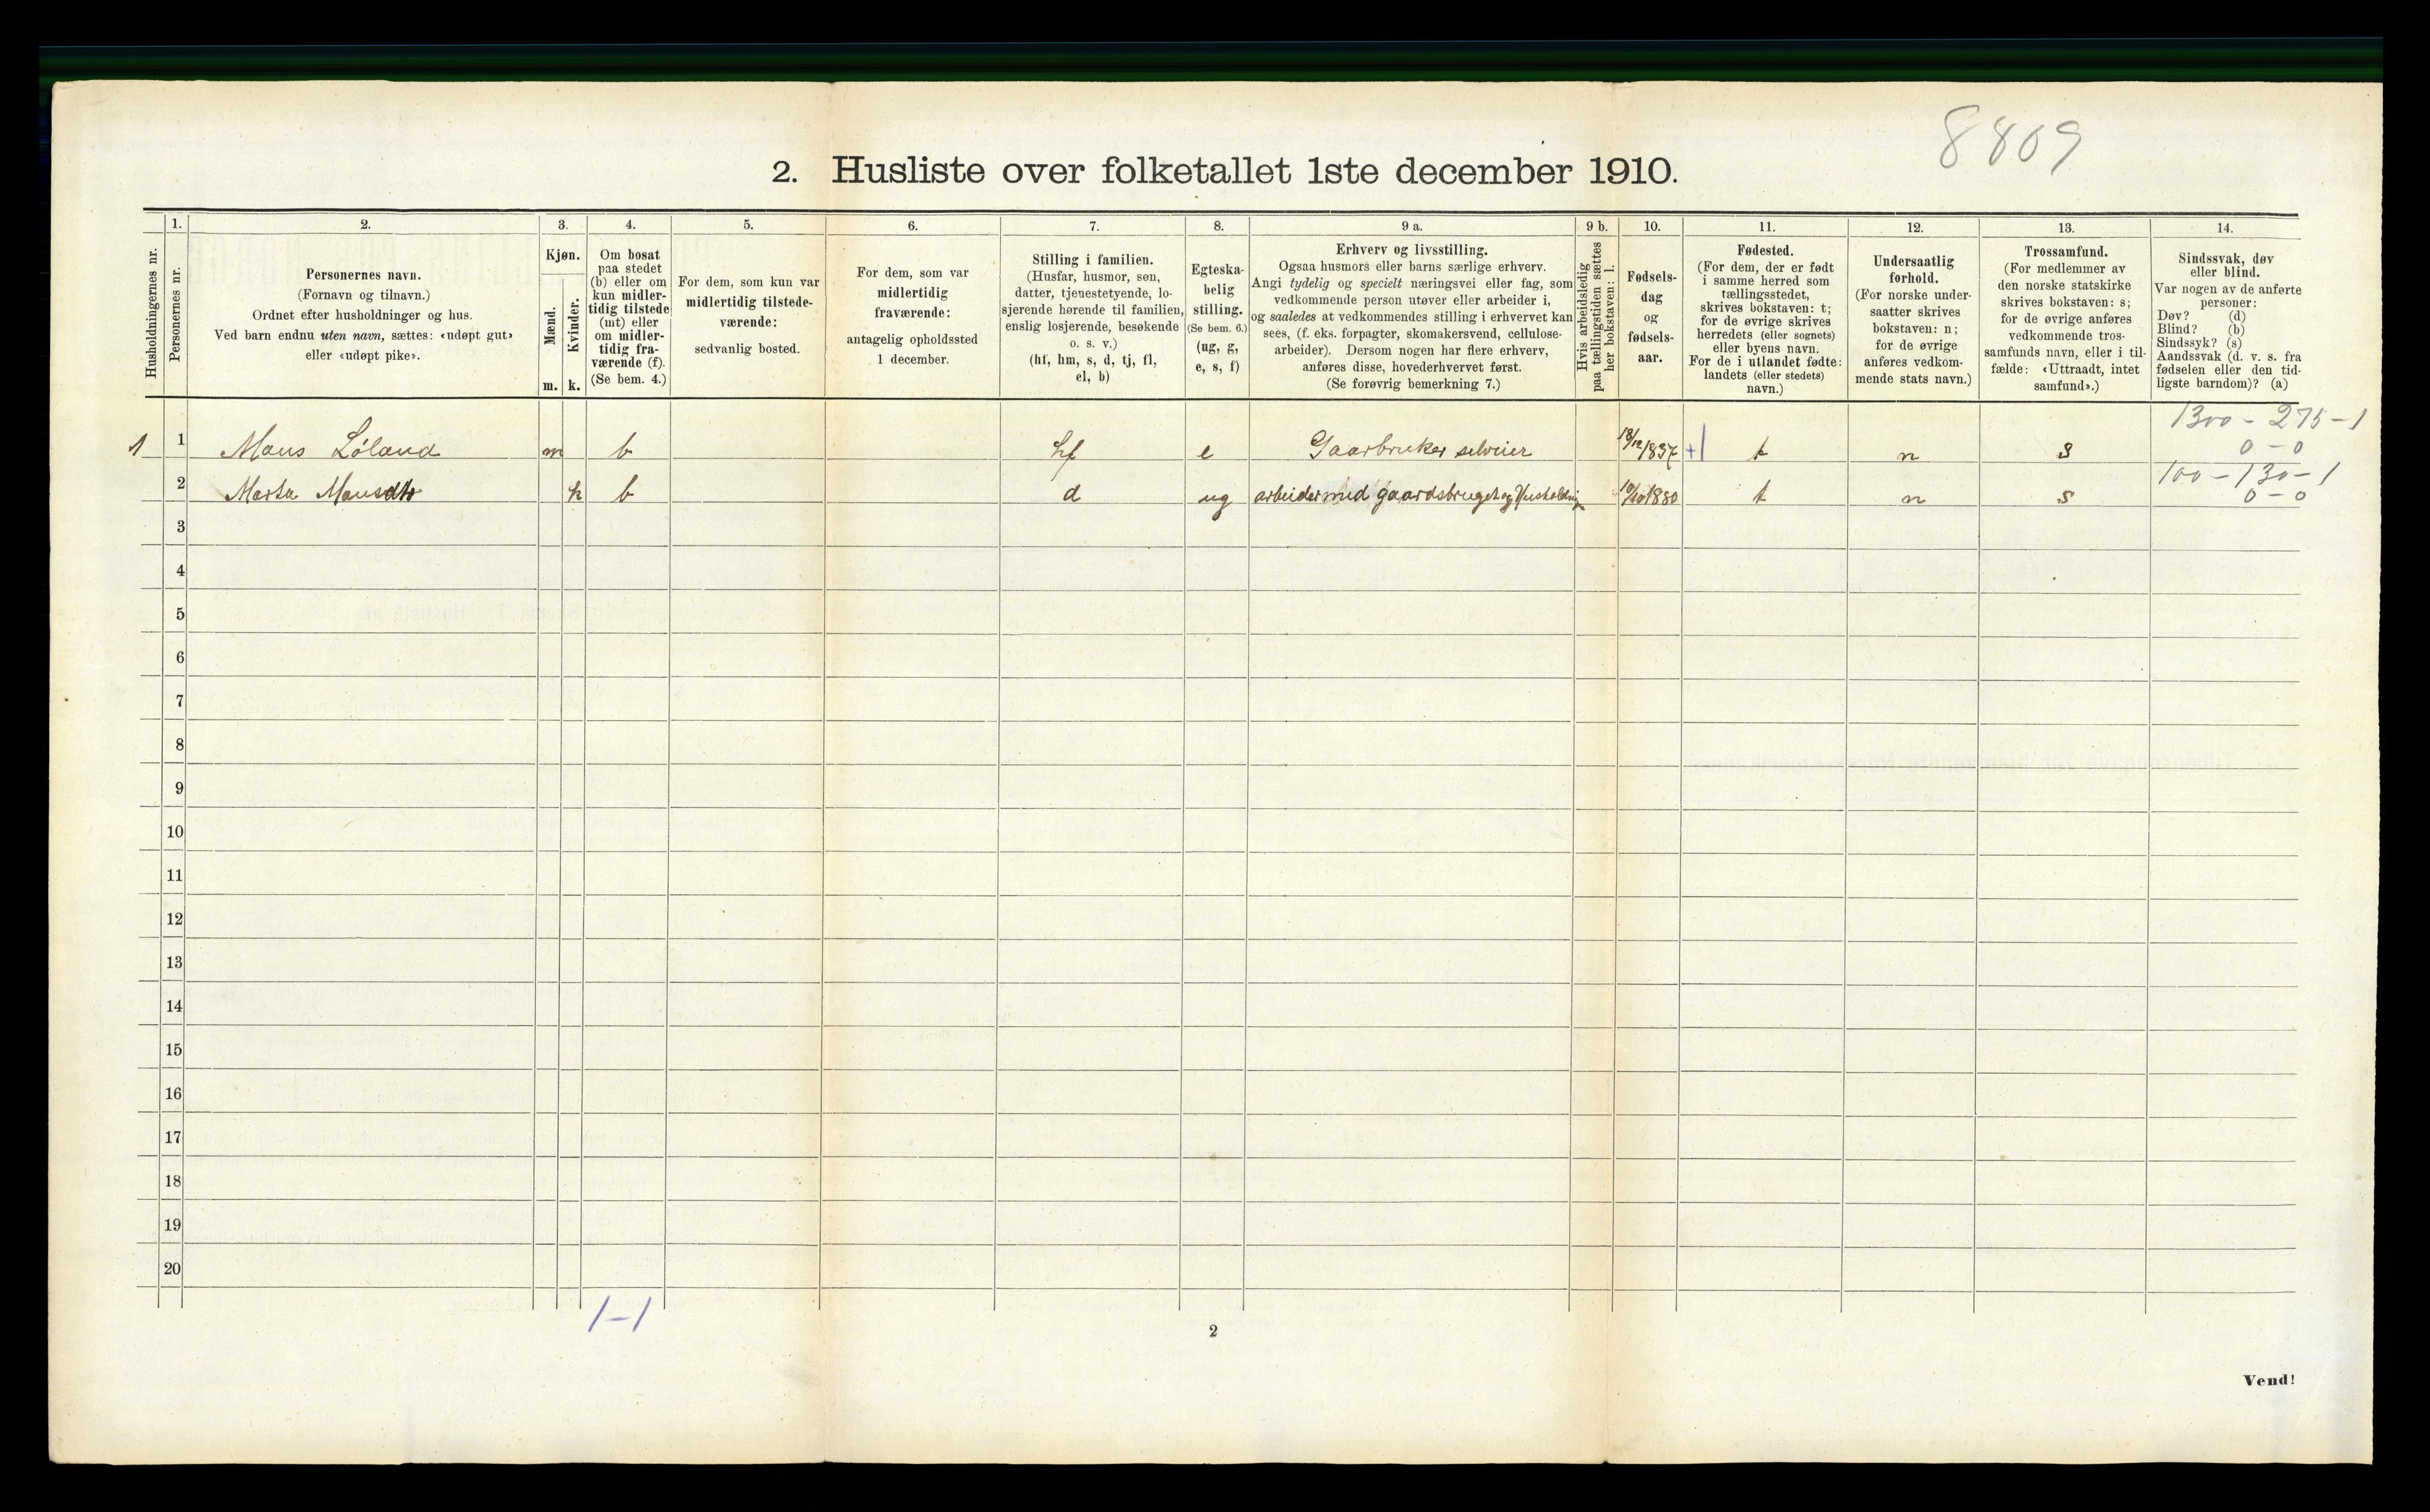 8809
2. Husliste over folketallet 1ste december 1910.
Husholdningernes nr.
1.
Personernes nr.
2.
Personernes navn.
(Fornavn og tilnavn.)
Ordnet efter husholdninger og hus.
Ved barn endnu uten navn, sættes: «udøpt gut»
eller «udøpt pike».
3.
Kjøn.
Mænd.
m.
Kvinder.
k.
4.
Om bosat
paa stedet
(b) eller om
kun midler-
tidig tilstede
(mt) eller
om midler-
tidig fra-
værende (f).
(Se bem. 4.)
5.
For dem, som kun var
midlertidig tilstede-
værende:
sedvanlig bosted.
6.
For dem, som var
midlertidig
fraværende:
antagelig opholdssted
1 december.
7.
Stilling i familien.
(Husfar, husmor, søn,
datter, tjenestetyende, lo-
sjerende hørende til familien,
enslig losjerende, besøkende
o. s. v.)
(hf, hm, s, d, tj, fl,
el, b)
8.
Egteska-
belig
stilling.
(Se bem. 6.)
(ug, g,
e, s, f)
9 a.
Erhverv og livsstilling.
Ogsaa husmors eller barns særlige erhverv.
Angi tydelig og specielt næringsvei eller fag, som
vedkommende person utøver eller arbeider i,
og saaledes at vedkommendes stilling i erhvervet kan
sees, (f. eks. forpagter, skomakersvend, cellulose-
arbeider). Dersom nogen har flere erhverv,
anføres disse, hovederhvervet først.
(Se forøvrig bemerkning 7.)
9 b.
Hvis arbeidsledig
paa tællingstiden sættes
her bokstaven: l.
10.
Fødsels-
dag
og
fødsels-
aar.
11.
Fødested.
(For dem, der er født
i samme herred som
tællingsstedet,
skrives bokstaven: t;
for de øvrige skrives
herredets (eller sognets)
eller byens navn.
For de i utlandet fødte:
landets (eller stedets)
navn.)
12.
Undersaatlig
forhold.
(For norske under-
saatter skrives
bokstaven: n;
for de øvrige
anføres vedkom-
mende stats navn.)
13.
Trossamfund.
(For medlemmer av
den norske statskirke
skrives bokstaven: s;
for de øvrige anføres
vedkommende tros-
samfunds navn, eller i til-
fælde: «Uttraadt, intet
samfund».)
14.
Sindssvak, døv
eller blind.
Var nogen av de anførte
personer:
Døv? (d)
Blind? (b)
Sindssyk? (s)
Aandssvak (d. v. s. fra
fødselen eller den tid-
ligste barndom)? (a)
1300 - 275 - 1
1 1 Mons Løland m b hf e Gaarbruker selveier 18/12 1837 +1 t n s 0 - 0
100 - 130 - 1
2 Marta Monsdtr k b d ug arbeider med gaardsbruget og Husholdning 10/10 1880 t n s 0 - 0
3
4
5
6
7
8
9
10
11
12
13
14
15
16
17
18
19
20
1-1
2
Vend!